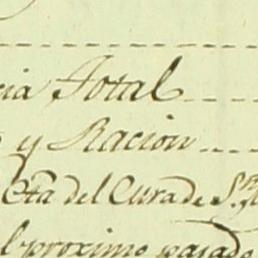 cia Total
y Racion
Cta del Cura de S.n
l proximo pasado